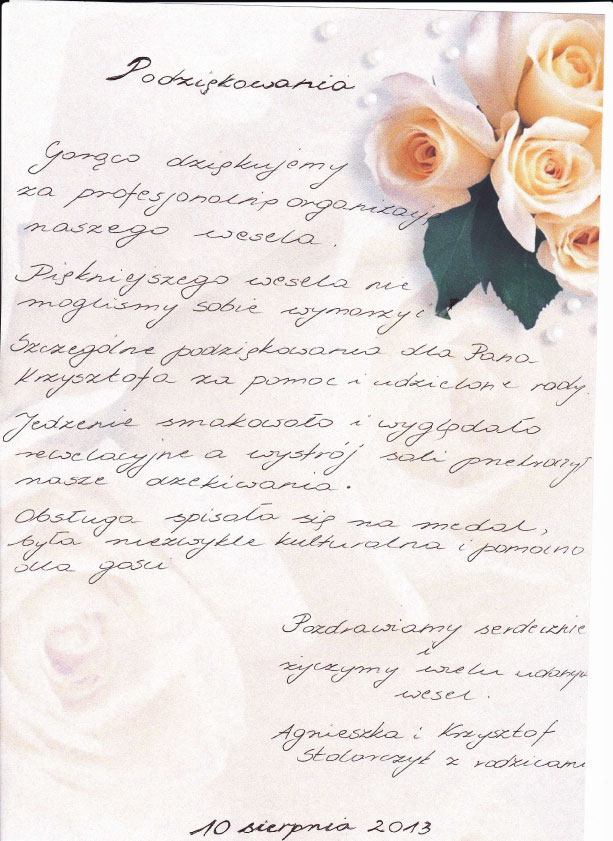 Podziękowania
Gorąco dziękujemy
za profesjonalną organizację
naszego wesela.
Piękniejszego wesela nie
mogliśmy sobie wymarzyć!
Szczególne podziękowania dla Pana
Krzysztofa za pomoc i udzielone rady.
Jedzenie smakowało i wyglądało
rewelacyjne a wystrój sali przekroczył
nasze oczekiwania.
Obsługa spisała się na medal,
była niezwykle kulturalna i pomocna
dla gości
Pozdrawiamy serdecznie
i
życzymy wielu udanych
wesel.
Agnieszka i Krzysztof
Stolarczyk z rodzicami
10 sierpnia 2013